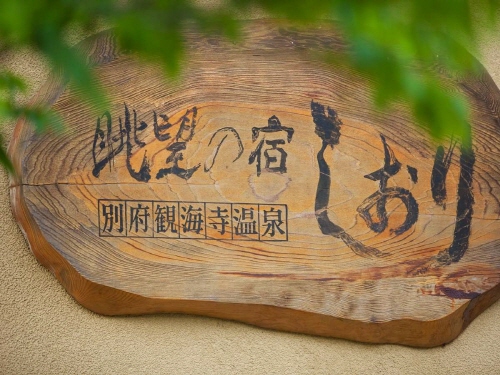 眺望の宿 しおり
別府観海寺温泉